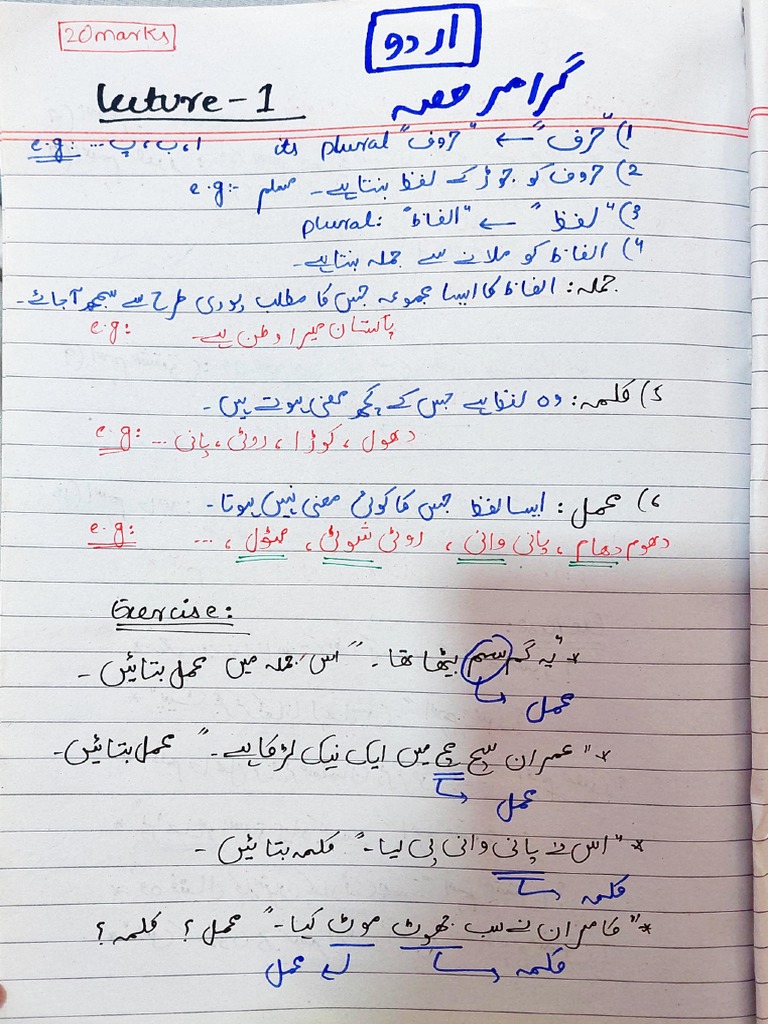 20 marks
اردو
Lecture - 1
گرامر حصہ
1) "حرف" ← "حروف" its plural e.g: ا، ب، پ ...
2) حروف کو جوڑ کے لفظ بنتا ہے۔ e.g:-
3) "لفظ" ← "الفاظ" plural:
4) الفاظ کو ملانے سے جملہ بنتا ہے۔
جملہ: الفاظ کا ایسا مجموعہ جس کا مطلب پوری طرح سے سمجھ آجائے۔
e.g: پاکستان میرا وطن ہے۔
5) کلمہ: وہ لفظ ہے جس کے کچھ معنی ہوتے ہیں۔
e.g: دھول، کوڑا، روٹی، پانی ...
6) عمل: ایسا لفظ جس کا کوئی معنی نہیں ہوتا۔
e.g: دھوم دھام، پانی وانی، روٹی شوٹی، ...
Exercise:
* "یہ گم سم بیٹھا تھا۔" اس جملہ میں عمل بتائیں۔
عمل
* "عمران سچ مچ میں ایک نیک لڑکا ہے۔" عمل بتائیں۔
عمل
* "اس نے پانی وانی پی لیا۔" کلمہ بتائیں۔
کلمہ
* "کامران نے سب جھوٹ موٹ کہا۔" عمل؟ کلمہ؟
کلمہ عمل